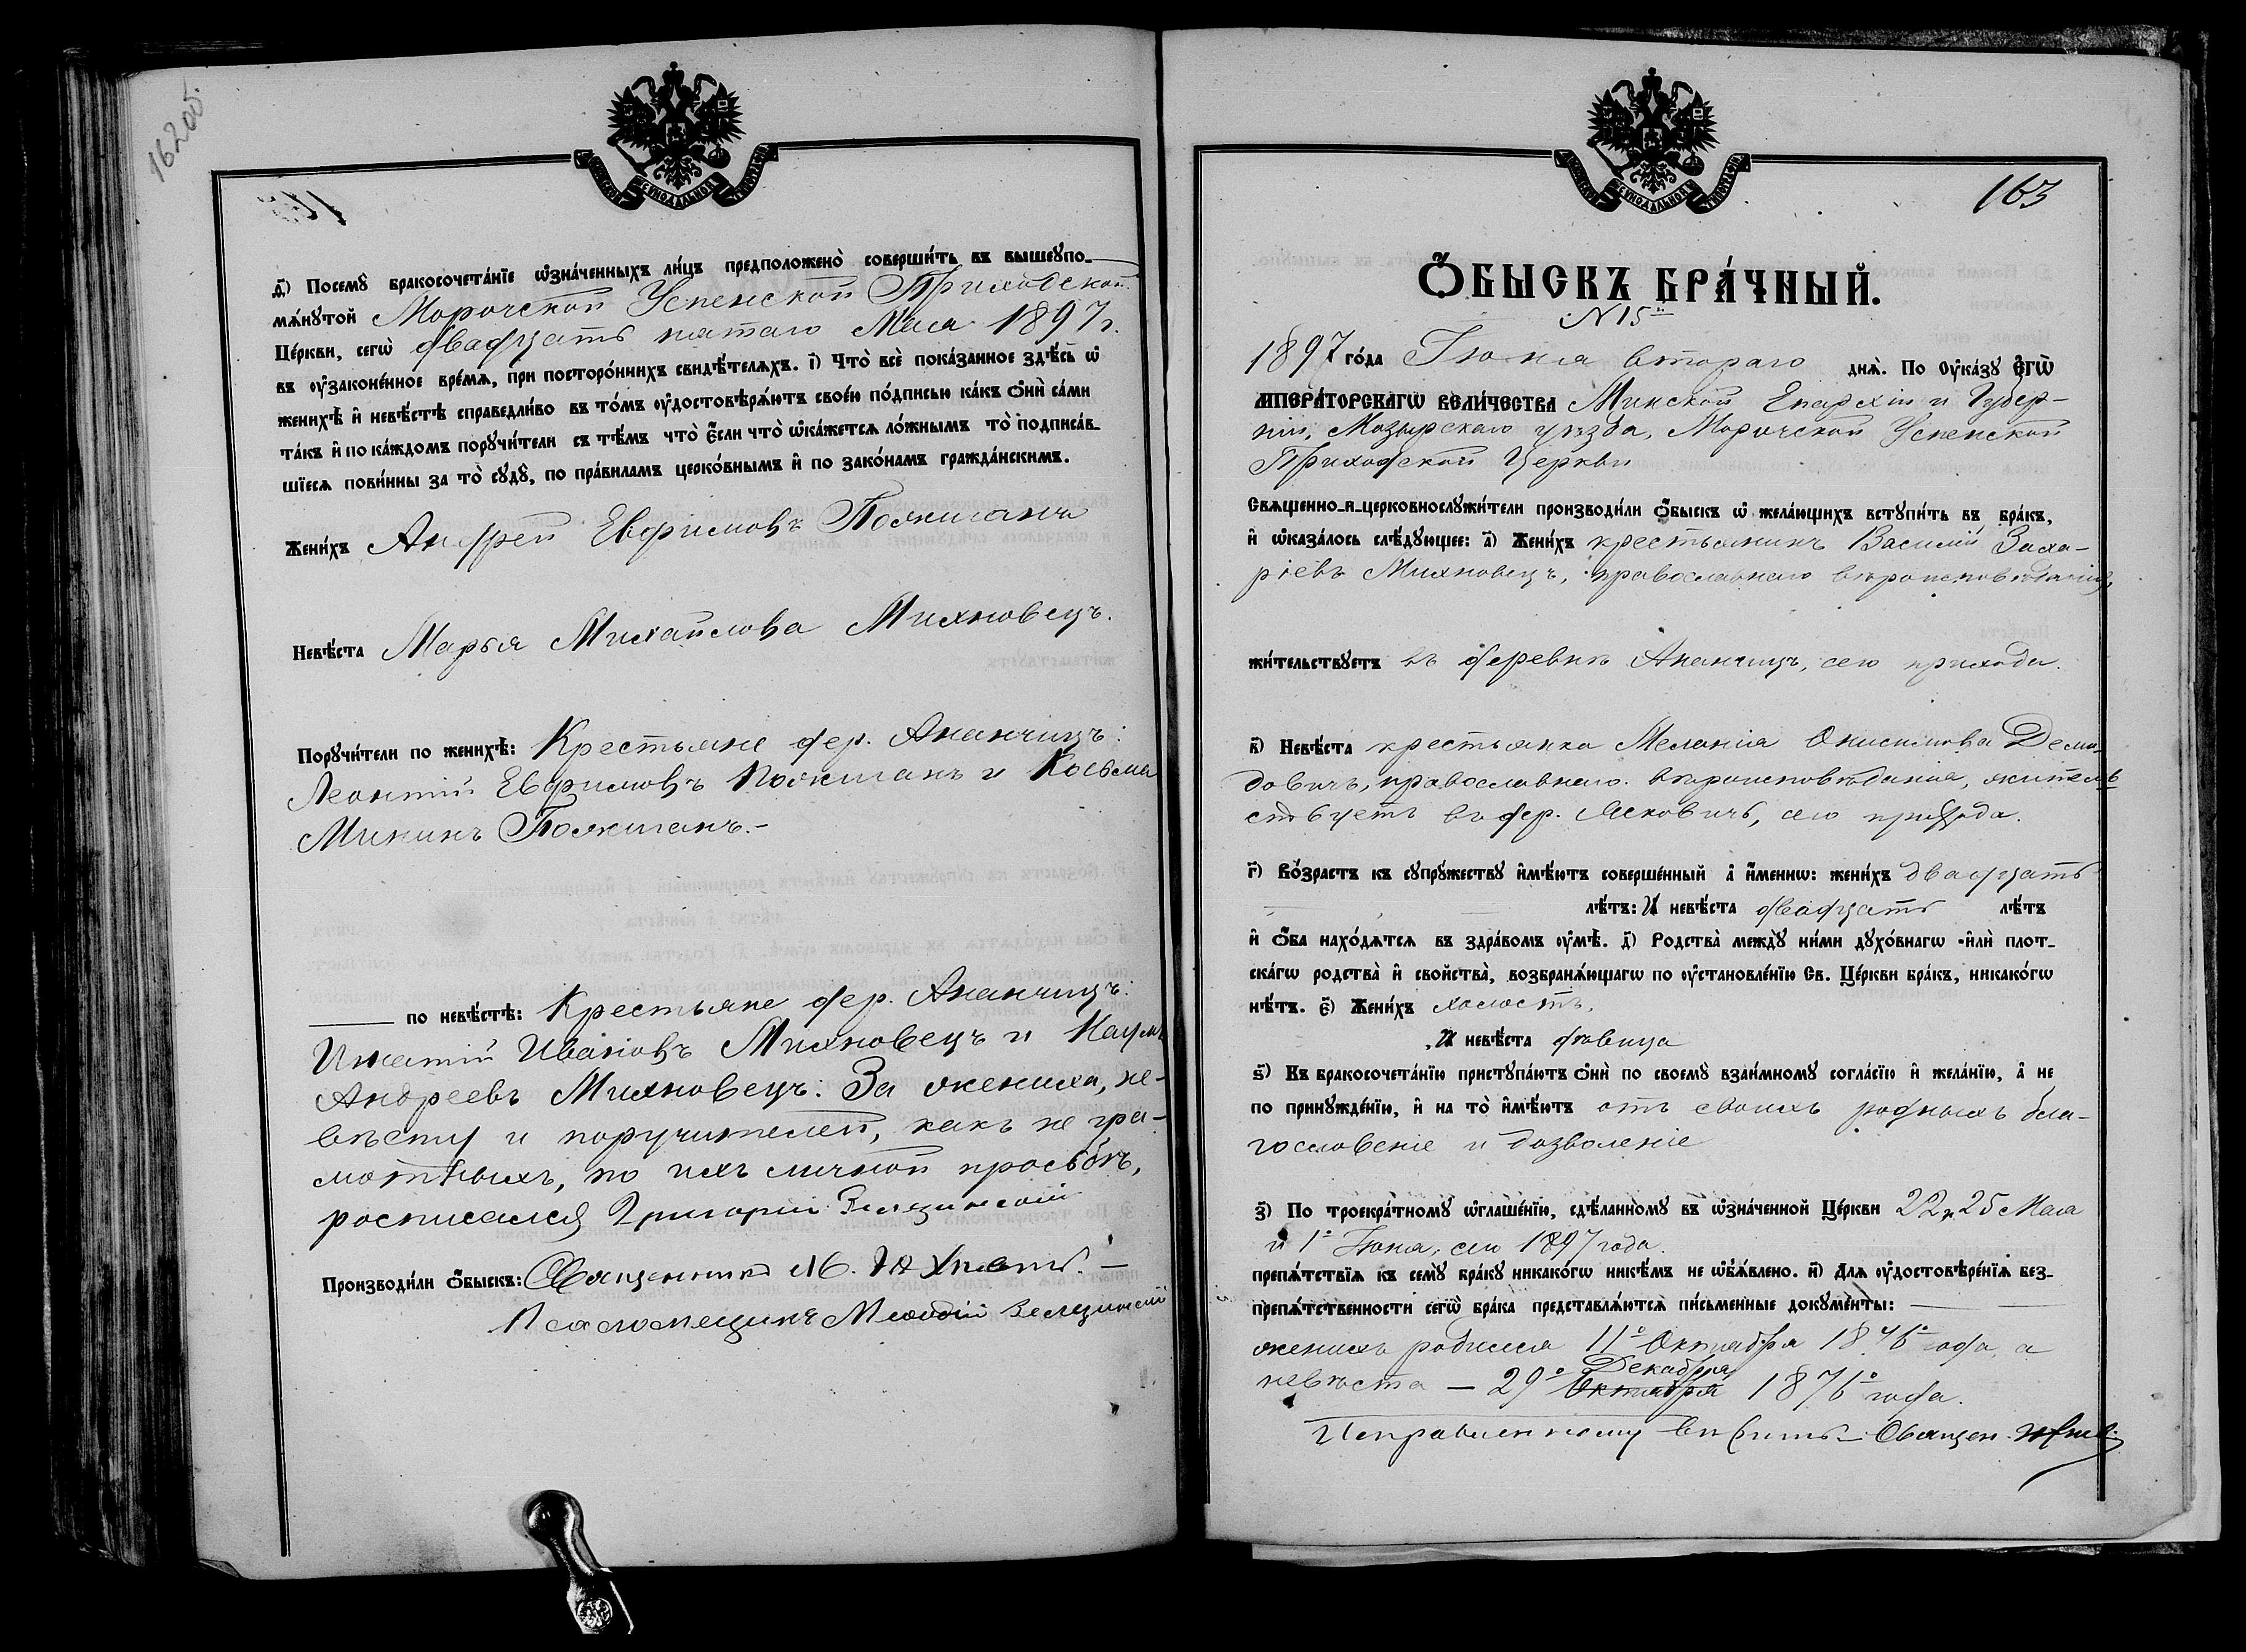 162об.
д҃) Посемꙋ̀ бракосочета́нїе ѡ҆зна́ченныхъ ли́цъ предположено̀ соверши́ть въ вышеꙋпо-
мѧ́нꙋтой Морочской Успенской Приходской
Це́ркви, сегѡ̀ двадцать пятаго Мая 1897 г.
въ ᲂу҆законе́нное вре́мѧ, при посторо́ннихъ свидѣ́телѧхъ. і҃) Что̀ всѐ пока́занное здѣ́сь ѡ҆
женихѣ̀ и҆ невѣ́стѣ справедли́во въ то́мъ ᲂу҆достовѣрѧ́ютъ свое́ю по́дписью ка́къ ѻ҆нѝ са́ми
та́къ и҆ по ка́ждомъ порꙋчи́тели съ тѣ́мъ что̀ є҆́сли что̀ ѡ҆ка́жетсѧ ло́жнымъ то̀ подписа́в-
шїесѧ пови́нны за то̀ сꙋдꙋ̀, по пра́виламъ церко́внымъ и҆ по зако́намъ гражда́нскимъ.
Жени́хъ Андрей Евфимовъ Полжиганъ
Невѣ́ста Марья Михайлова Михновецъ.
Порꙋчи́тели по женихѣ̀: Крестьяне дер. Ананчицъ:
Леонтій Евфимовъ и Косьма
Мининъ
по невѣ́стѣ: Крестьяне дер. Ананчицъ:
Игнатій Ивановъ Михновецъ и Наумъ
Андреевъ Михновецъ: За жениха, не-
вѣсту и поручителей, какъ не гра-
мотныхъ, по ихъ личной просьбѣ,
росписался Григорій
Производи́ли ѻ҆́быскъ: Священникъ
Псаломщикъ
163
Ѻ҆́БЫСКЪ БРА́ЧНЫЙ.
№ 15й
1897 го́да Іюня втораго днѧ̀. По Оу҆ка́зꙋ Є҆гѡ̀
И҆МПЕРА́ТОРСКАГѠ ВЕЛИ́ЧЕСТВА Минской Епархіи и Губер-
ніи, Мозырскаго уѣзда, Морочской Успенской
Приходской Церкви
Свѧщенно-и-церковнослꙋжи́тели производи́ли ѻ҆́быскъ ѡ҆ жела́ющихъ встꙋпи́ть въ бра́къ,
и҆ ѡ҆каза́лось слѣ́дꙋющее: а҃) Жени́хъ крестьянинъ Василій Заха-
ріевъ Михновецъ, православнаго вѣроисповѣданія,
жи́тельствꙋетъ въ деревнѣ Ананчицъ, сего прихода.
в҃) Невѣ́ста крестьянка Меланія Онисимова Деми-
довичъ, православнаго вѣроисповѣданія, житель-
ствуетъ въ дер. Ясковичъ, сего прихода.
г҃) Во́зрастъ къ сꙋпрꙋ́жествꙋ и҆мѣ́ютъ соверше́нный а҆ и҆́меннѡ: жени́хъ двадцать
лѣ́тъ: И҆ невѣ́ста двадцать лѣ́тъ
и҆ ѻ҆́ба нахо́дѧтсѧ въ здра́вомъ ᲂу҆мѣ̀. д҃) Родства̀ междꙋ̀ ни́ми дꙋхо́внагѡ и҆лѝ плот-
ска́гѡ родства̀ и҆ свойства̀, возбранѧ́ющагѡ по ᲂу҆становле́нїю Св. Це́ркви бра́къ, никако́гѡ
нѣ́тъ. є҃) Жени́хъ холостъ,
И҆ невѣ́ста дѣвица
ѕ҃) Къ бракосочета́нїю пристꙋпа́ютъ ѻ҆нѝ по своемꙋ̀ взаи́мномꙋ согла́сїю и҆ жела́нїю, а҆ не
по принꙋжде́нїю, и҆ на то̀ и҆мѣ́ютъ отъ своихъ родныхъ бла-
гословеніе и дозволеніе
з҃) По троекра́тномꙋ ѡ҆глаше́нїю, сдѣ́ланномꙋ въ ѡ҆зна́ченной Це́ркви 22, 25 Мая
и 1о Іюня, сего 1897 года.
препѧ́тствїѧ къ семꙋ̀ бра́кꙋ никако́гѡ никѣ́мъ не ѡ҆б̾ѧ́влено. и҃) Длѧ ᲂу҆достовѣре́нїѧ без-
препѧ́тственности сегѡ̀ бра́ка представлѧ́ютсѧ пи́сьменные докꙋме́нты:
женихъ родился 11о Октября 1876о года, а
невѣста — 29о Октября Декабря 1876о года.
Исправленному вѣрить — Священ.